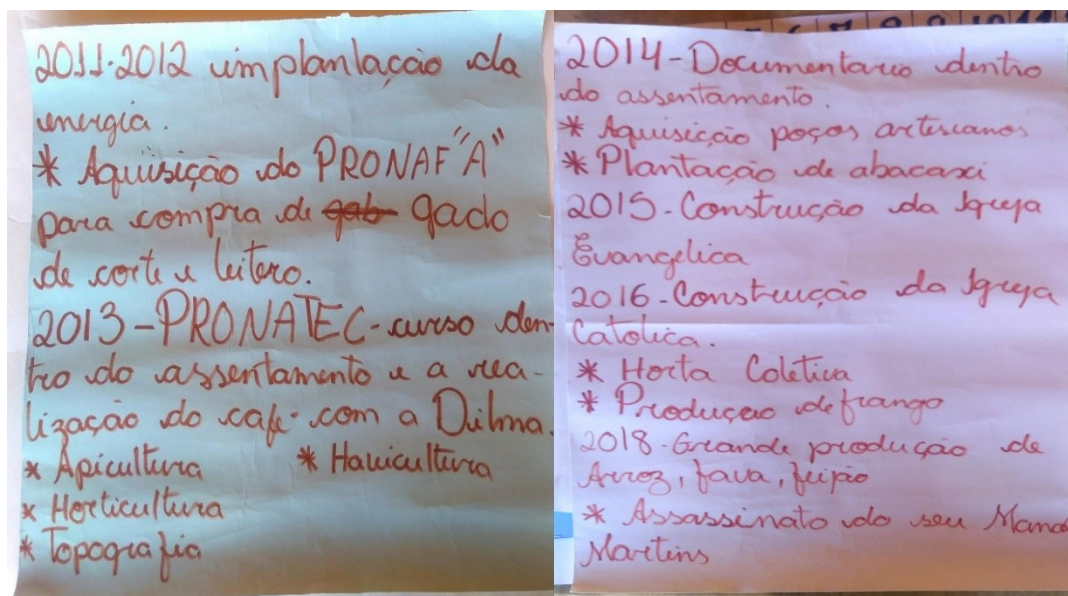 2011-2012 implantação da
energia.
* Aquisição do PRONAF "A"
para compra de gab gado
de corte e leitero.
2013-PRONATEC-curso den-
tro do assentamento e a rea-
lização do café com a Dilma.
* Apicultura * Havicultura
* Horticultura
* Topografia
2014-Documentario dentro
do assentamento.
* Aquisição poços artesianos
* Plantação de abacaxi
2015-Construção da Igreja
Evangelica
2016-Construção da Igreja
Catolica.
* Horta Coletiva
* Produçao de frango
2018-Grande produção de
Arroz, fava, feijão
* Assassinato do seu
Martins